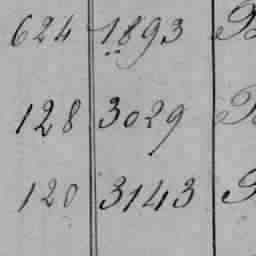 624 1893
128 3029
120 3143